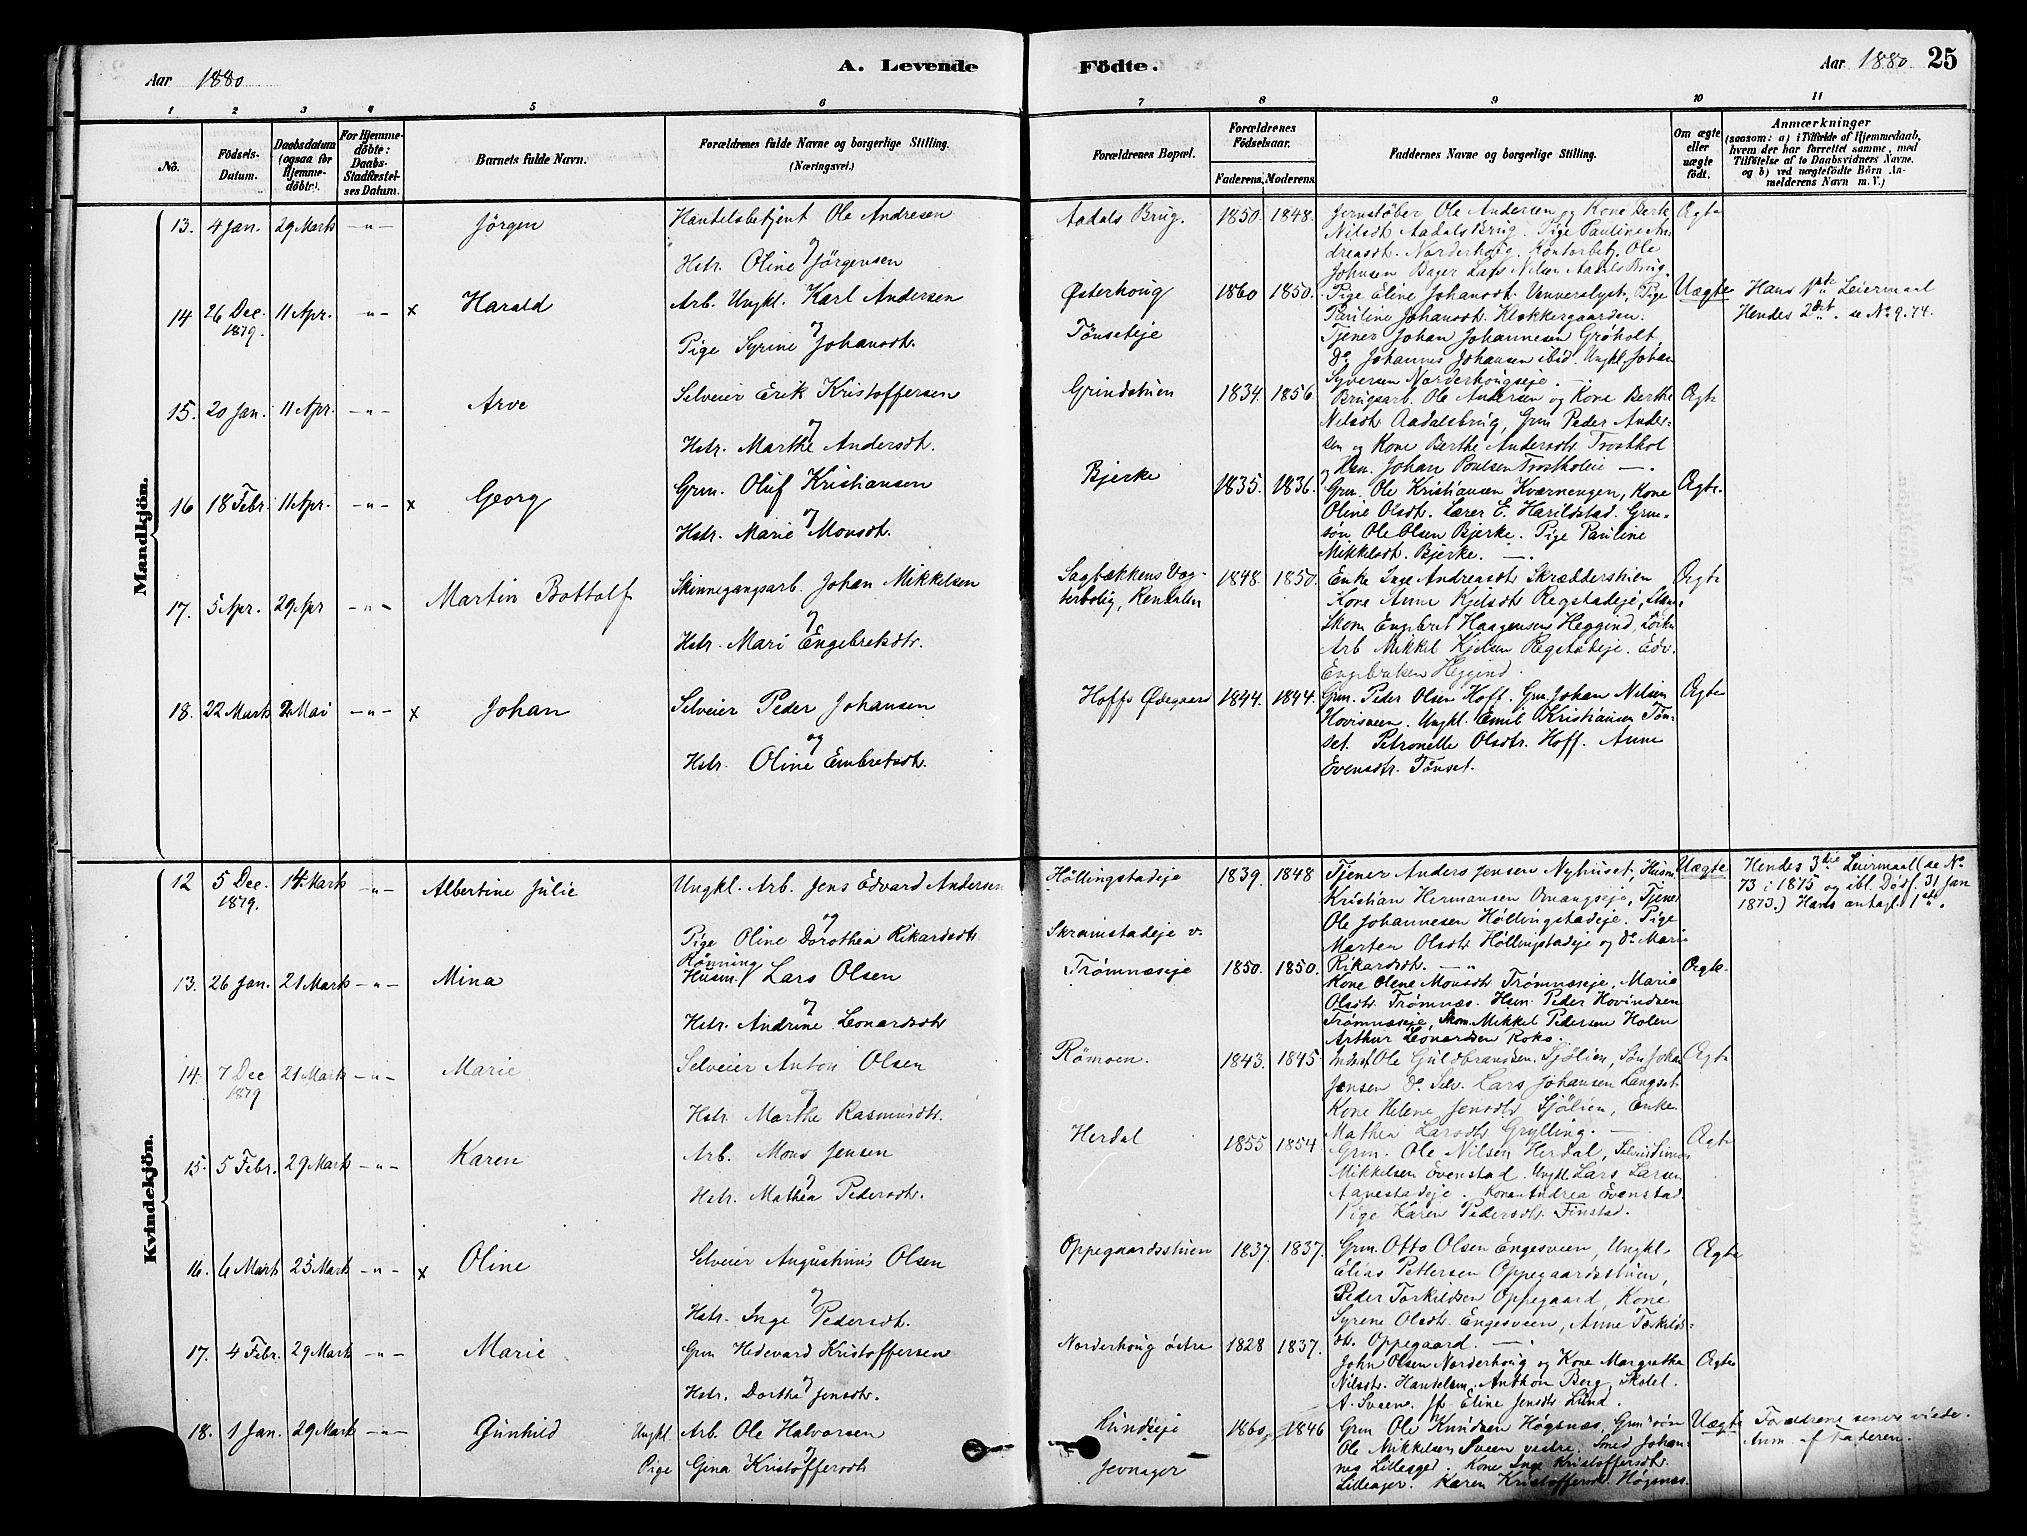 Aar 1880
A. Levende Födte.
Aar 1880 25
1 2 3 4 5 6 7 8 9 10 11
No.
Födsels-Datum.
Daabsdatum (ogsaa for Hjemme-döbte).
For Hjemme-döbte: Daabs-Stadfæstel-ses Datum.
Barnets fulde Navn.
Forældrenes fulde Navne og borgerlige Stilling. (Næringsvei.)
Forældrenes Bopæl.
Forældrenes Födselsaar.
Faderens. Moderens.
Faddernes Navne og borgerlige Stilling.
Om ægte eller uægte födt.
Anmærkninger
(saasom: a) i Tilfælde af Hjemmedaab,
hvem der har forrettet samme, med
Tilföielse af to Daabsvidners Navne.
og b) ved uægtefödte Börn An-
melderens Navn m. V.)
Mandkjön.
13. 4 Jan. 29 Marts -"- Jörgen
Handelsbetjent Ole Andresen
og
Hstr. Oline Jörgensen
Aadals Brug. 1850. 1848.
Jernstøber Ole Andersen og Kone Berte
Nilsdt. Aadals Brug. Pige Pauline An-
dreasdt. Norderhoug. Kontorbetj. Ole
Johnsen Bager Lars Nilsen Aadals Brug.
Ægte
14 26 Dec. 1879. 11 Apr. -"- x Harald
Arb. Ungkl. Karl Andersen
og
Pige Syrine Johansdt.
Østerhoug
Tönseteje
1860 1850.
Pige Eline Johansdt. Venneslyst, Pige
Pauline Johansdt. Klokkergaarden.
Tjener Johan Johannesen Grøholt,
Do. Johannes Johansen ibid. Ungkl. Johan
Syversen Norderhougseje.
Uægte
Hans 1ste Leiermaal
Hendes 2det. se No. 9. 74.
15. 20 Jan. 11 Apr. -"- Arve
Selveier Erik Kristoffersen
og
Hstr. Marthe Andersdt.
Grindstuen 1834. 1856.
Brugsarb. Ole Andersen og Kone Berthe
Nilsdt. Aadalsbrug, Grm. Peder Ander-
sen og Kone Berthe Andersdtr. Trosthol
og Hsm. Johan Poulsen Trostholeie —.
Ægte
16 18 Febr. 11 Apr. -"- x Georg
Grm. Oluf Kristiansen
og
Hstr. Marie Monsdt.
Bjerke 1835. 1836.
Grm. Ole Kristiansen Kværnengen, Kone
Oline Olsdt. Lærer E. Harildstad. Grm-
søn Ole Olsen Bjerke. Pige Pauline
Mikkelsdt. Bjerke. —.
Ægte.
17. 5 Apr. 29 Apr -"- Martin Bottolf
Skinnegangsarb. Johan Mikkelsen
og
Hstr. Mari Engebretsdtr.
Sagbækkens Vog-
terbolig, Rendalen
1848 1850.
Enke Inge Andreasdtr Skrædderstuen
Kone Anne Kjelsdtr Regstadeje,
Skom. Engebret Haagensen Heggind,
Arb Mikkel Kjelsen Regstadeje. Edv.
Engebretsen Heggind.
Ægte
18. 22 Marts 2 Mai -"- x Johan
Selveier Peder Johansen
og
Hstr. Oline Embretsdtr.
Hoffs Ødegaard 1844. 1844.
Grm. Peder Olsen Hoff. Grm Johan Nilsen
Hovisveen. Ungkl. Emil Kristiansen Tön-
set. Petronelle Olsdtr. Hoff. Anne
Evensdtr. Tönset.
Ægte
Kvindekjön.
12 5 Dec. 1879. 14 Marts -"- Albertine Julie
Ungkl. Arb. Jens Edvard Andersen
og
Pige Oline Dorothea Rikardsdtr
Höllingstadeje
Skramstadeje v.
1839. 1848
Tjener Anders Jensen Nyhuset, Husm.
Kristian Hermansen Omangseje, Tjener
Ole Johannesen Höllingstadeje. Pige
Marten Olsdtr Höllingstadeje og do. Marie
Rikardsdt. —"
Uægte
Hendes 3die Leiermaal (se No.
73 i 1875 og ibl. Døsf. 31 Jan
1873.) Hans antagl. 1ste.
13. 26 Jan. 21 Marts -"- Mina
Rönning
Husm. Lars Olsen
og
Hstr. Andrine Leonardsdtr
Trømnæseje 1850. 1850.
Kone Olene Monsdt Trømnæseje, Marie
Olsdtr Trømnæs. Hsm. Peder Hovindsen
Trømnæseje, Skom Mikkel Pedersen Holen
Arthur Leonardsen Roko.
Ægte.
14. 7 Dec 1879 21 Marts -"- Marie
Selveier Anton Olsen
og
Hstr. Marthe Rasmusdtr.
Römoen. 1843. 1845
Inderst Ole Guldbrandsen Sjölien, Søn Johan
Jensen do. Selv. Lars Johansen Langset.
Kone Helene Jensdtr Sjölien, Enke
Mathea Larsdtr Grylling. —
Ægte
15. 5 Febr. 29 Marts -"- Karen
Arb. Mons Jensen
og
Hstr. Mathea Pedersdtr.
Herdal 1855 1854
Grm. Ole Nilsen Herdal, Selveier Simon
Mikkelsen Evenstad. Ungkl Lars Larsen
Aanestadeje. Kone Andrea Evenstad.
Pige Karen Pedersdtr. Finstad.
Ægte
16. 6 Marts 25 Marts -"- x Oline
Selveier Augustinus Olsen
og
Hstr. Inge Pedersdt.
Oppegaardsstuen 1837. 1837.
Grm. Otto Olsen Engesveen, Ungkl.
Elias Pettersen Oppegaardsstuen,
Peder Torkildsen Oppegaard, Kone
Syrene Olsdtr. Engesveen, Anne Torkilds-
dtr. Oppegaard. —.
Ægte
17. 4 Febr. 29 Marts -"- Marie
Grm Hedevard Kristoffersen
og
Hstr. Dorthe Jensdtr.
Norderhoug østre 1828 1837.
John Olsen Norderhoug og Kone Margrethe
Nilsdtr. Handelsm. Anthon Berg, Skolel.
A. Sveene. Jf Eline Jensdtr Lund.
Ægte
18. 1 Jan. 29 Marts -"- Gunhild
Ungkl Arb. Ole Halvorsen
og
Pige Gina Kristoffersdtr
Lundseje
Jevnager
1860. 1846
Grm Ole Knudsen Högsnæs. Grm søn
Ole Mikkelsen Sveen vestre. Smed Johan-
nes Lilleager. Kone Inge Kristoffersdtr.
Lilleager. Karen Kristoffersdt. Høgsnæs.
Uægte
Forældrene senere viede.
Anm. af Faderen.